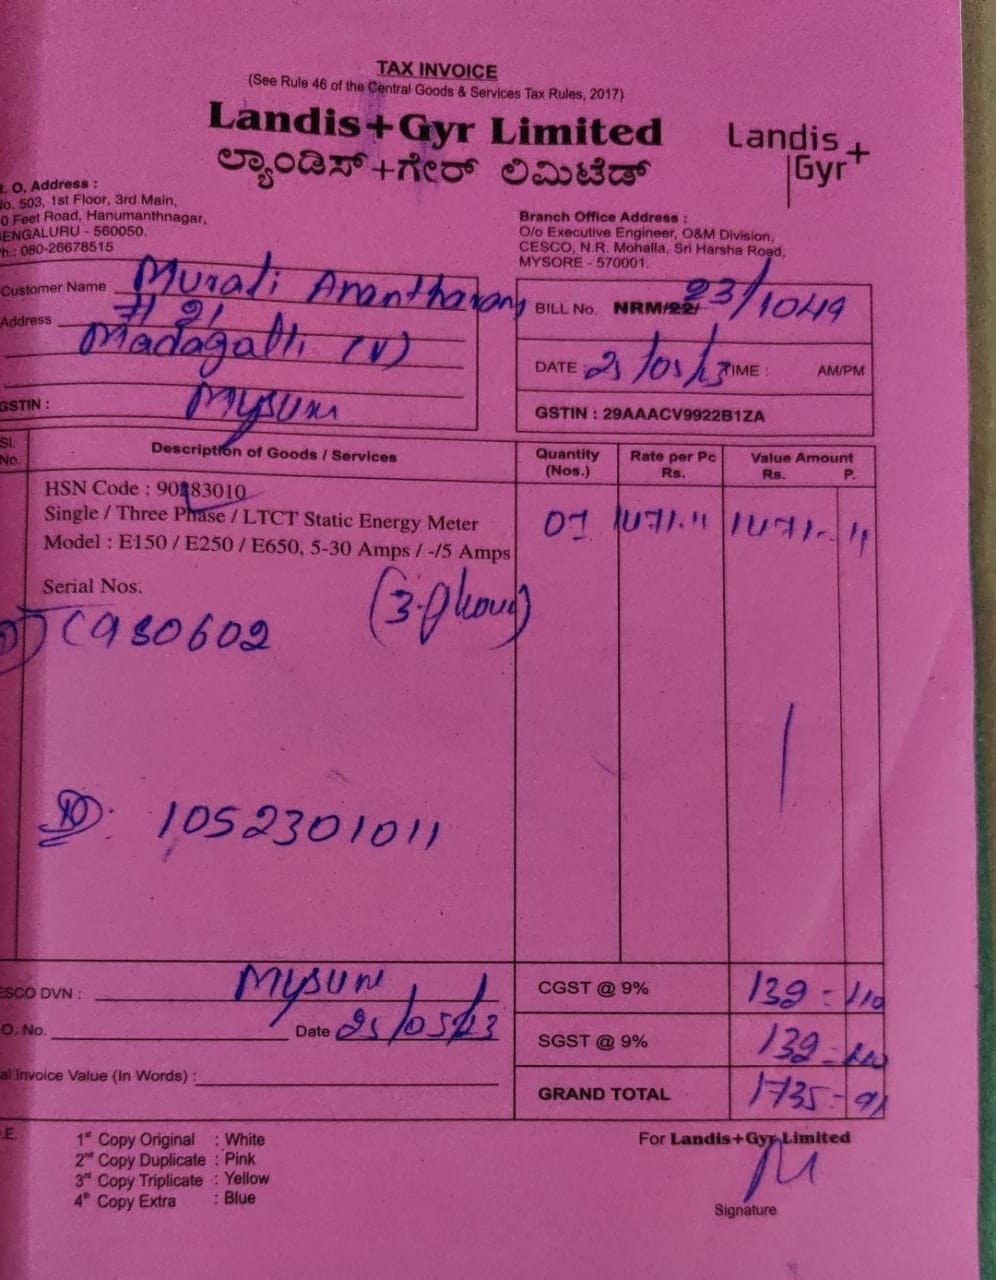 TAX INVOICE
(See Rule 46 of the Central Goods & Services Tax Rules, 2017)
Landis+Gyr Limited
ಲ್ಯಾಂಡಿಸ್+ಗೇರ್ ಲಿಮಿಟೆಡ್
Landis+
Gyr
. O. Address :
o. 503, 1st Floor, 3rd Main,
0 Feet Road, Hanumanthnagar,
ENGALURU - 560050.
h.: 080-26678515
Branch Office Address :
O/o Executive Engineer, O&M Division,
CESCO, N.R. Mohalla, Sri Harsha Road,
MYSORE - 570001.
Customer Name Murali
Address
Madagalli (V)
GSTIN :
BILL No. NRM/22/ 23/1049
DATE : 25/05/23 TIME : AM/PM
GSTIN : 29AAACV9922B1ZA
Sl. No. Description of Goods / Services Quantity (Nos.) Rate per Pc Rs. Value Amount Rs. P.
HSN Code : 90283010
Single / Three Phase / LTCT Static Energy Meter
Model : E150 / E250 / E650, 5-30 Amps / -/5 Amps
01 1471.11 1471.- 11
Serial Nos.
(3-phase)
C980602
1052301011
ESCO DVN :
O. No. Date 25/05/23
al Invoice Value (In Words) :
CGST @ 9% 132 - 40
SGST @ 9% 132 - 40
GRAND TOTAL 1735 - 91
.E.
1st Copy Original : White
2nd Copy Duplicate : Pink
3rd Copy Triplicate : Yellow
4th Copy Extra : Blue
For Landis+Gyr Limited
Signature